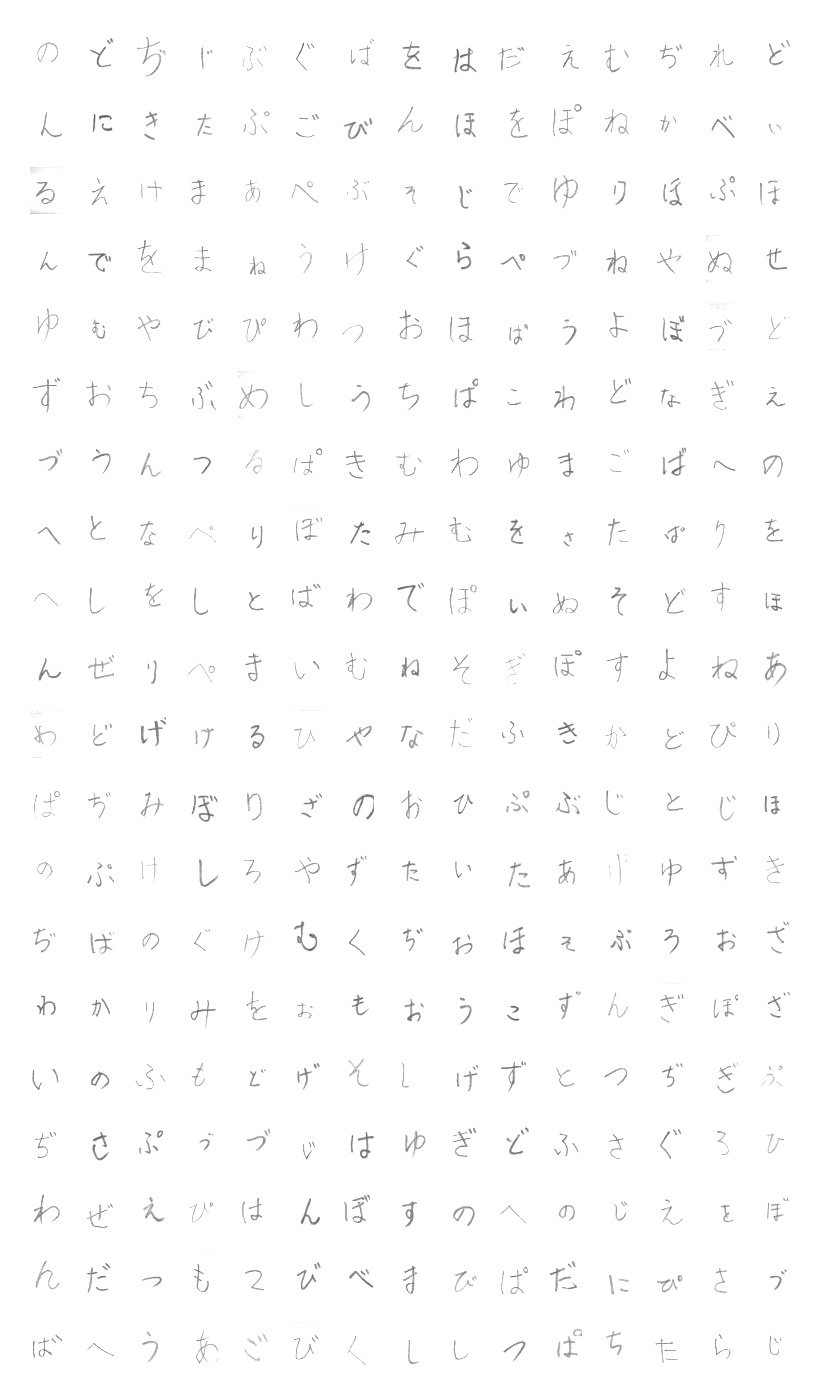 のどぢじぶぐばをはだえむぢれど
んにきたぷごびんほをぽねかべい
るえけまあぺぶそじでゆりほぷほ
んでをまねうけぐらぺづねやぬせ
ゆむやびぴわつおほぱうよぼづど
ずおちぶめしうちぱこわどなぎえ
づうんつるぱきむわゆまごばへの
へとなぺりぼたみむをさたぱりを
へしをしとばわでぽいぬそどすほ
んぜりぺまいむねそぎぽすよねあ
わどげけるひやなだふきかどぴり
ぱぢみぼりざのおひぷぶじとじほ
のぷけしろやずたいたあげゆずき
ぢばのぐけむくぢおほそぶろおざ
わかりみをおもおうこずんぎぽざ
いのふもどげそしげずとつぢぎぷ
ぢさぷうづじはゆぎどふさぐろひ
わぜえぴはんぼすのへのじえをぼ
んだつもつびべまびぱだにぴさづ
ばへうあごびくししつぱちたらじ